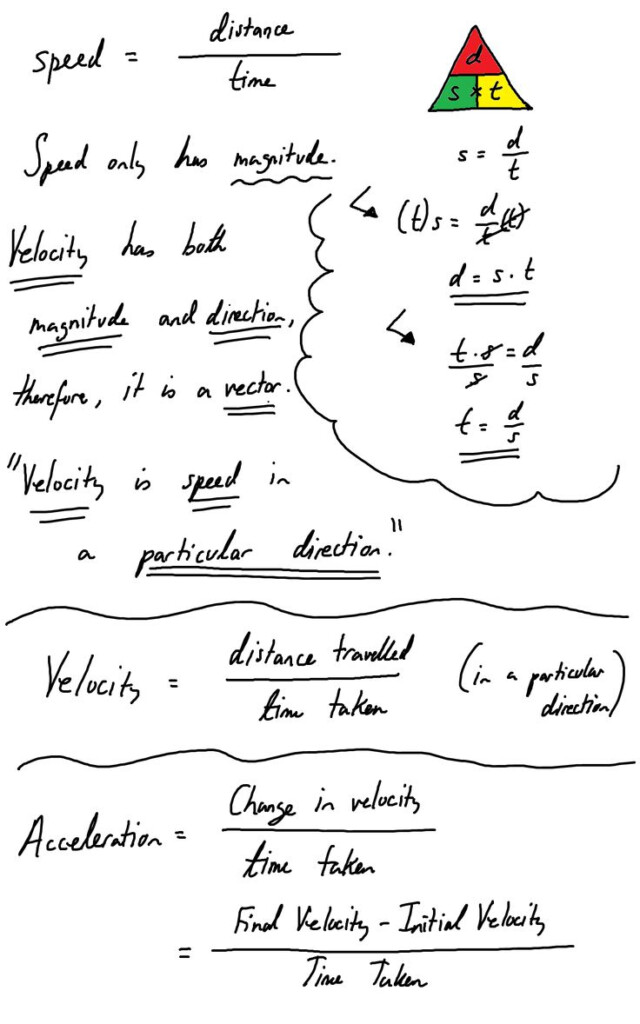 speed = distance / time
Speed only has magnitude.
Velocity has both
magnitude and direction,
therefore, it is a vector.
"Velocity is speed in
a particular direction."
d
s × t
s = d / t
(t) s = d / t (t)
d = s · t
t · s / s = d / s
t = d / s
Velocity = distance travelled / time taken (in a particular direction)
Acceleration = Change in velocity / time taken
= Final Velocity - Initial Velocity / Time Taken